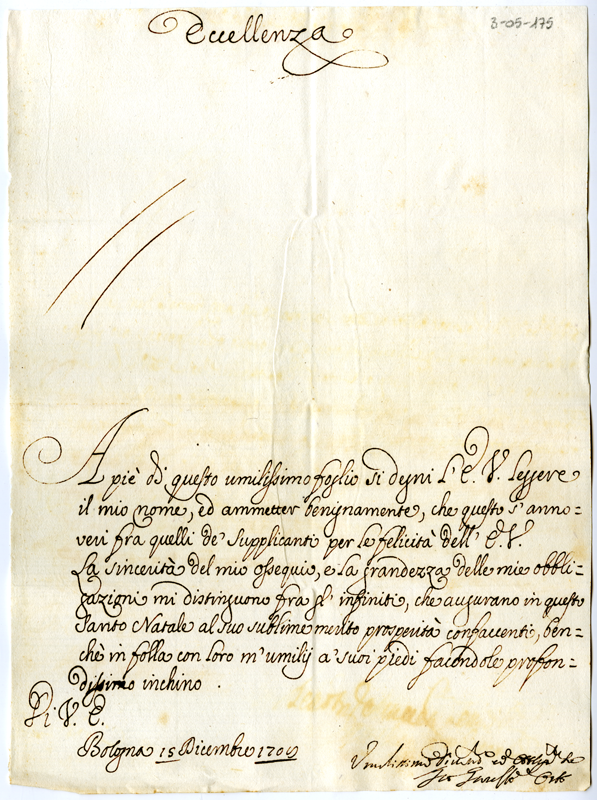 3-05-175
Eccellenza
A piè di questo umilissimo foglio si degni l'E. V. leggere
il mio nome, ed ammetter benignamente, che questo s'anno=
veri fra quelli de' Supplicanti per le felicità dell' E. V.
La sincerità del mio ossequio, e la grandezza delle mie obbli=
gazioni mi distinguono fra gl' infiniti, che augurano in questo
Santo Natale al suo sublime merito prosperità confacenti, ben=
chè in folla con loro m'umilij a' suoi piedi facendole profon=
dissimo inchino.
Di V. E.
Bologna 15 Dicembre
Umilissimo